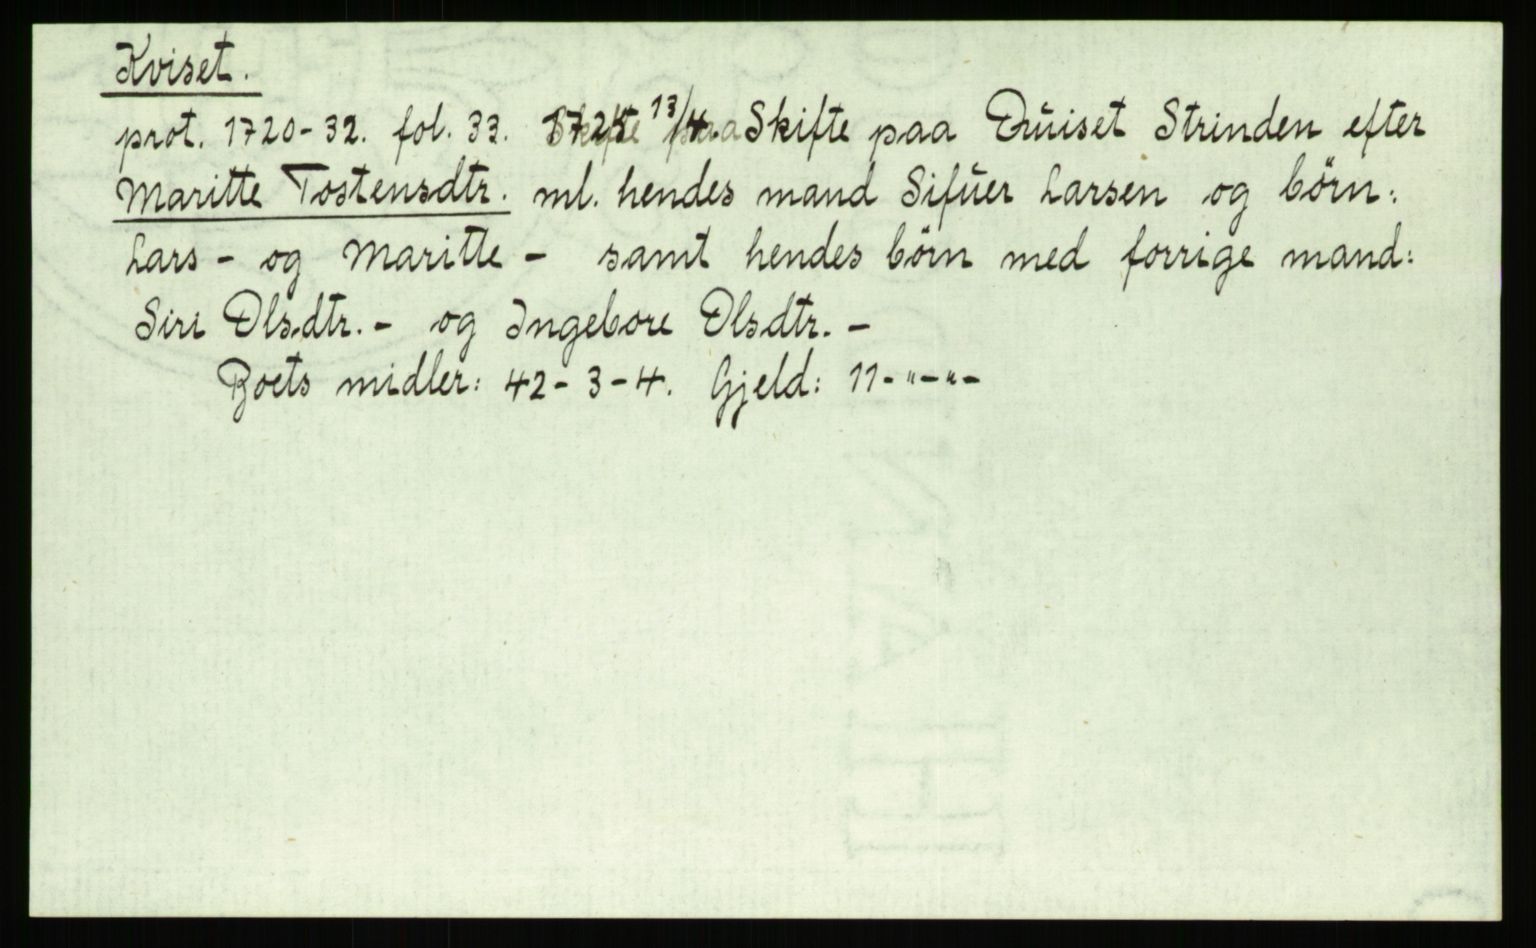 Kviset.
prot. 1720-32. fol. 33. 13/4. Skifte paa Quiset Strinden efter
Maritte Tostensdtr. ml. hendes mand Sifuer Larsen og börn:
Lars - og Maritte - samt hendes börn med forrige mand:
Siri Olsdtr. - og Ingebore Olsdtr. -
Boets midler: 42-3-4. Gjeld: 11-"-"-